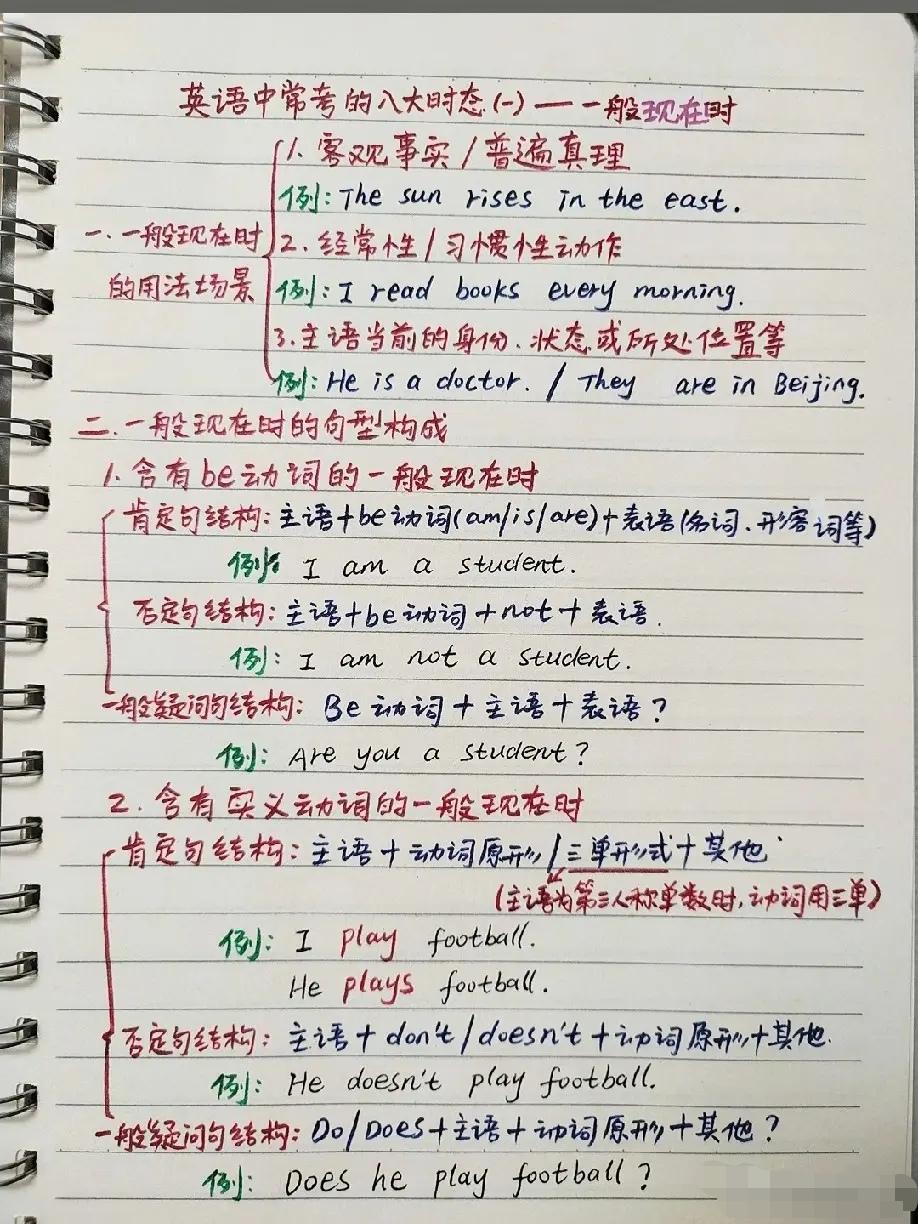 英语中常考的八大时态(一)——一般现在时
1. 客观事实/普遍真理
例: The sun rises in the east.
一. 一般现在时
2. 经常性/习惯性动作
的用法场景
例: I read books every morning.
3. 主语当前的身份、状态或所处位置等
例: He is a doctor. / They are in Beijing.
二. 一般现在时的句型构成
1. 含有be动词的一般现在时
肯定句结构: 主语+be动词(am/is/are)+表语(名词、形容词等)
例: I am a student.
否定句结构: 主语+be动词+not+表语.
例: I am not a student.
一般疑问句结构: Be动词+主语+表语?
例: Are you a student?
2. 含有实义动词的一般现在时
肯定句结构: 主语+动词原形/三单形式+其他
(主语为第三人称单数时,动词用三单)
例: I play football.
He plays football.
否定句结构: 主语+don't/doesn't+动词原形+其他.
例: He doesn't play football.
一般疑问句结构: Do/Does+主语+动词原形+其他?
例: Does he play football?